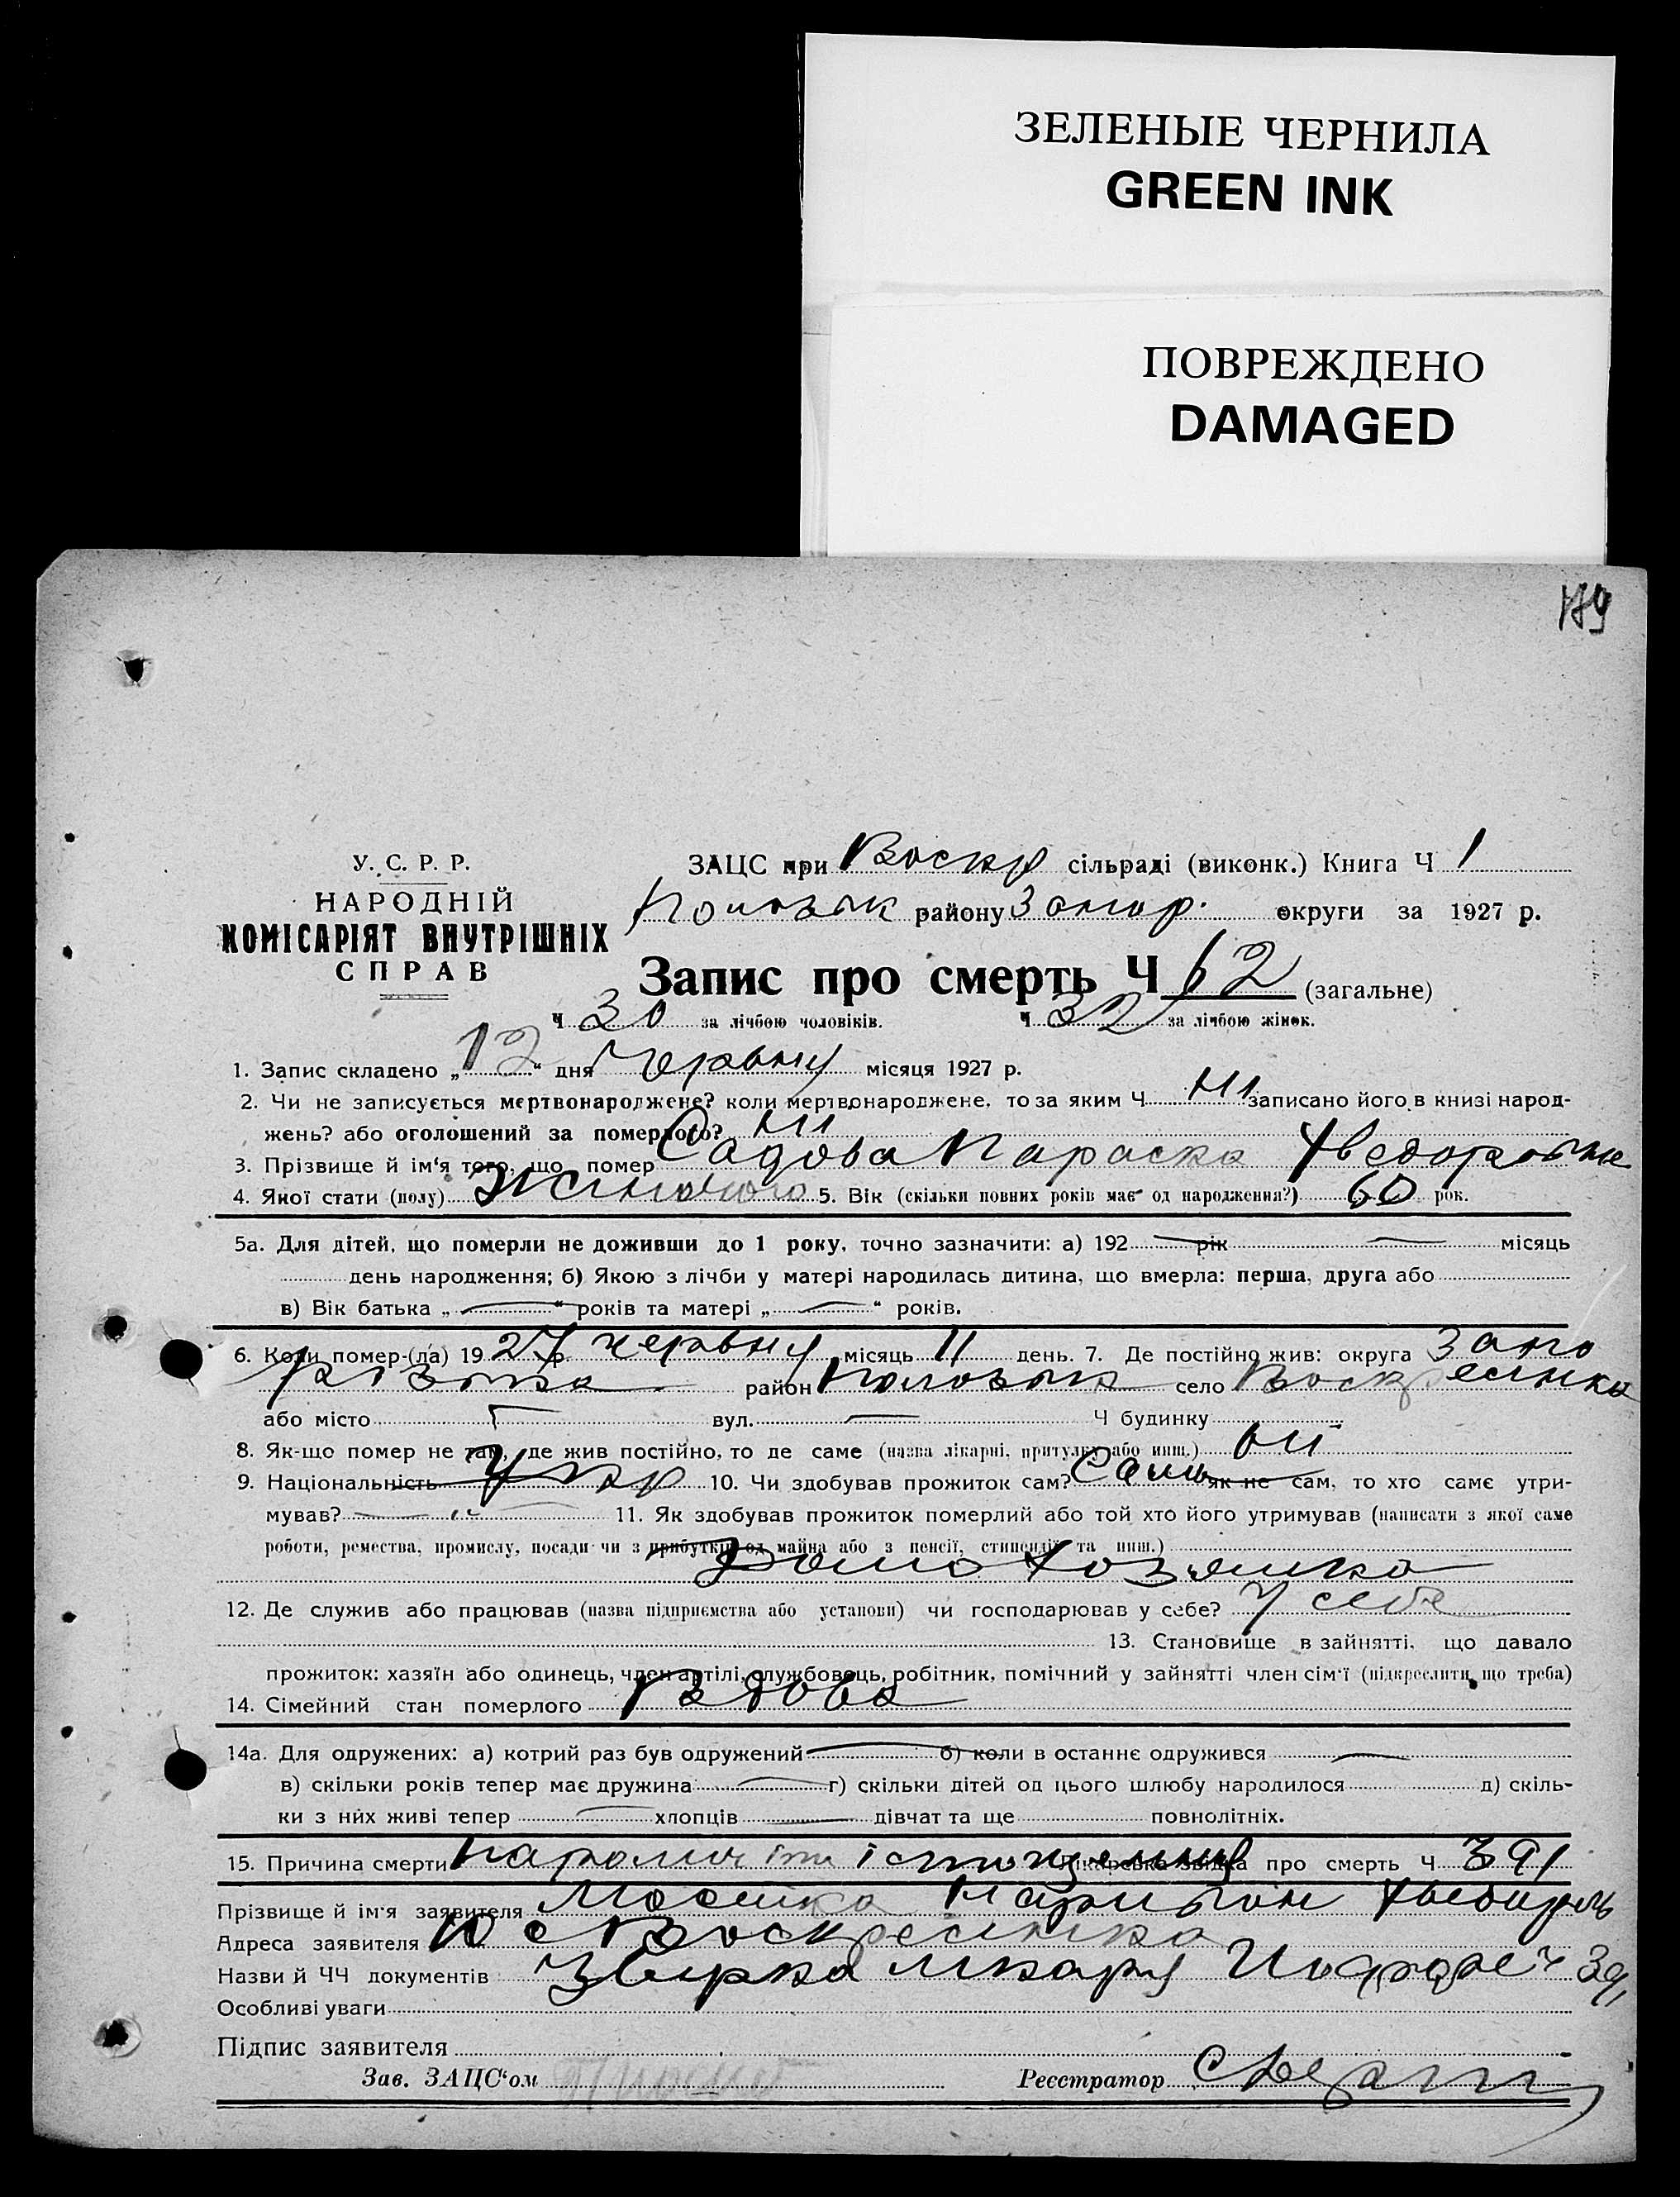 ЗЕЛЕНЫЕ ЧЕРНИЛА
GREEN INK
ПОВРЕЖДЕНО
DAMAGED
У. С. Р. Р.
НАРОДНІЙ
КОМІСАРІЯТ ВНУТРІШНІХ
СПРАВ
ЗАЦС при Воскр сільраді (виконк.) Книга Ч 1
району Запор. округи за 1927 р.
Запис про смерть Ч 62 (загальне)
Ч 30 за лічбою чоловіків. Ч 32 за лічбою жінок.
1. Запис складено „12“ дня Червня місяця 1927 р.
2. Чи не записується мертвонароджене? коли мертвонароджене, то за яким Ч Ні записано його в книзі народ-
жень? або оголошений за померлого? Ні
3. Прізвище й ім‘я того, що помер Садова Параска Хведоровна
4. Якої стати (полу) 5. Вік (скільки повних років має од народження?) 60 рок.
5а. Для дітей, що померли не доживши до 1 року, точно зазначити: а) 192 рік — місяць
день народження; б) Якою з лічби у матері народилась дитина, що вмерла: перша, друга або
в) Вік батька „—“ років та матері „—“ років.
6. Коли помер-(ла) 1927 р. червня місяць 11 день. 7. Де постійно жив: округа Запо
район село Воскресенка
або місто — вул. — Ч будинку
8. Як-що помер не там, де жив постійно, то де саме (назва лікарні, притулку або инш.)
9. Національність Укр 10. Чи здобував прожиток сам? Сам як не сам, то хто саме утри-
мував? — 11. Як здобував прожиток померлий або той хто його утримував (написати з якої саме
роботи, ремества, промислу, посади чи з прибутків од майна або з пенсії, стипендії та инш.)
Домохозяика
12. Де служив або працював (назва підприємства або установи) чи господарював у себе? У себе
13. Становище в зайнятті, що давало
прожиток: хазяїн або одинець, член артілі, службовець, робітник, помічний у зайнятті член сім‘ї (підкреслити, що треба)
14. Сімейний стан померлого Вдова
14а. Для одружених: а) котрий раз був одружений — б) коли в останнє одружився —
в) скільки років тепер має дружина — г) скільки дітей од цього шлюбу народилося д) скіль-
ки з них живі тепер — хлопців — дівчат та ще повнолітніх.
15. Причина смерти Лікарська звістка про смерть Ч 391
Прізвище й ім‘я заявителя
Адреса заявителя с Воскресенка
Назви й ЧЧ документів лікаря ч 391
Особливі уваги
Підпис заявителя
Зав. ЗАЦС‘ом Реєстратор